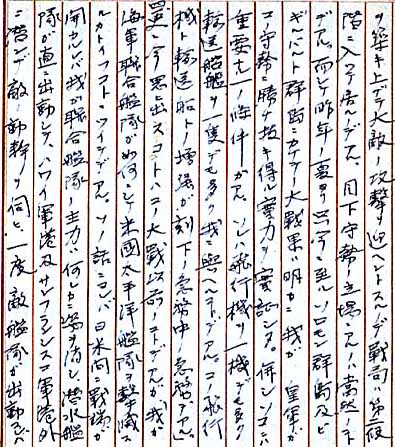 ヲ築キ上ゲテ大敵ノ攻撃ヲ迎ヘントスルノデ戦司ノ第二段
階ニ入ツテ居ルノデアル。目下守勢ノ立場ニアルハ當然ノ
デアル。而シテ昨年ノ夏ヨリ冬ニ至ルソロモン群島及ビ
ギルバート群島ニカケテノ大戦果ハ明カニ我ガ皇軍ガ
コノ守勢ニ勝チ抜キ得ル實力ヲ實証シタ。併シソコニ
重要ナル一條件ガアル。ソレハ飛行機ヲ一機デモ多ク
輸送船艦ヲ一隻デモ多ク我ニ與ヘヨデアル。コノ飛行
機ト輸送船トノ増強ガ刻下ノ急務中ノ急務デアル。
今思出スコトハコノ大戦以前ノコトデアルガ、我ガ
海軍聯合艦隊ガ如何ニシテ米國太平洋艦隊ヲ撃滅ス
ルカトイフコトニツイテデアル。ソノ話ニヨレバ日米間ニ戦端ガ
開カルレバ我ガ聯合艦隊ノ主力ハ何レカニ姿ヲ消シ潜水艦
隊ガ直ニ出動シテハワイ軍港及サンフランシスコ軍港外
ニ潜ンデ敵ノ動静ヲ伺ヒ一度敵艦隊ガ出動スレバ